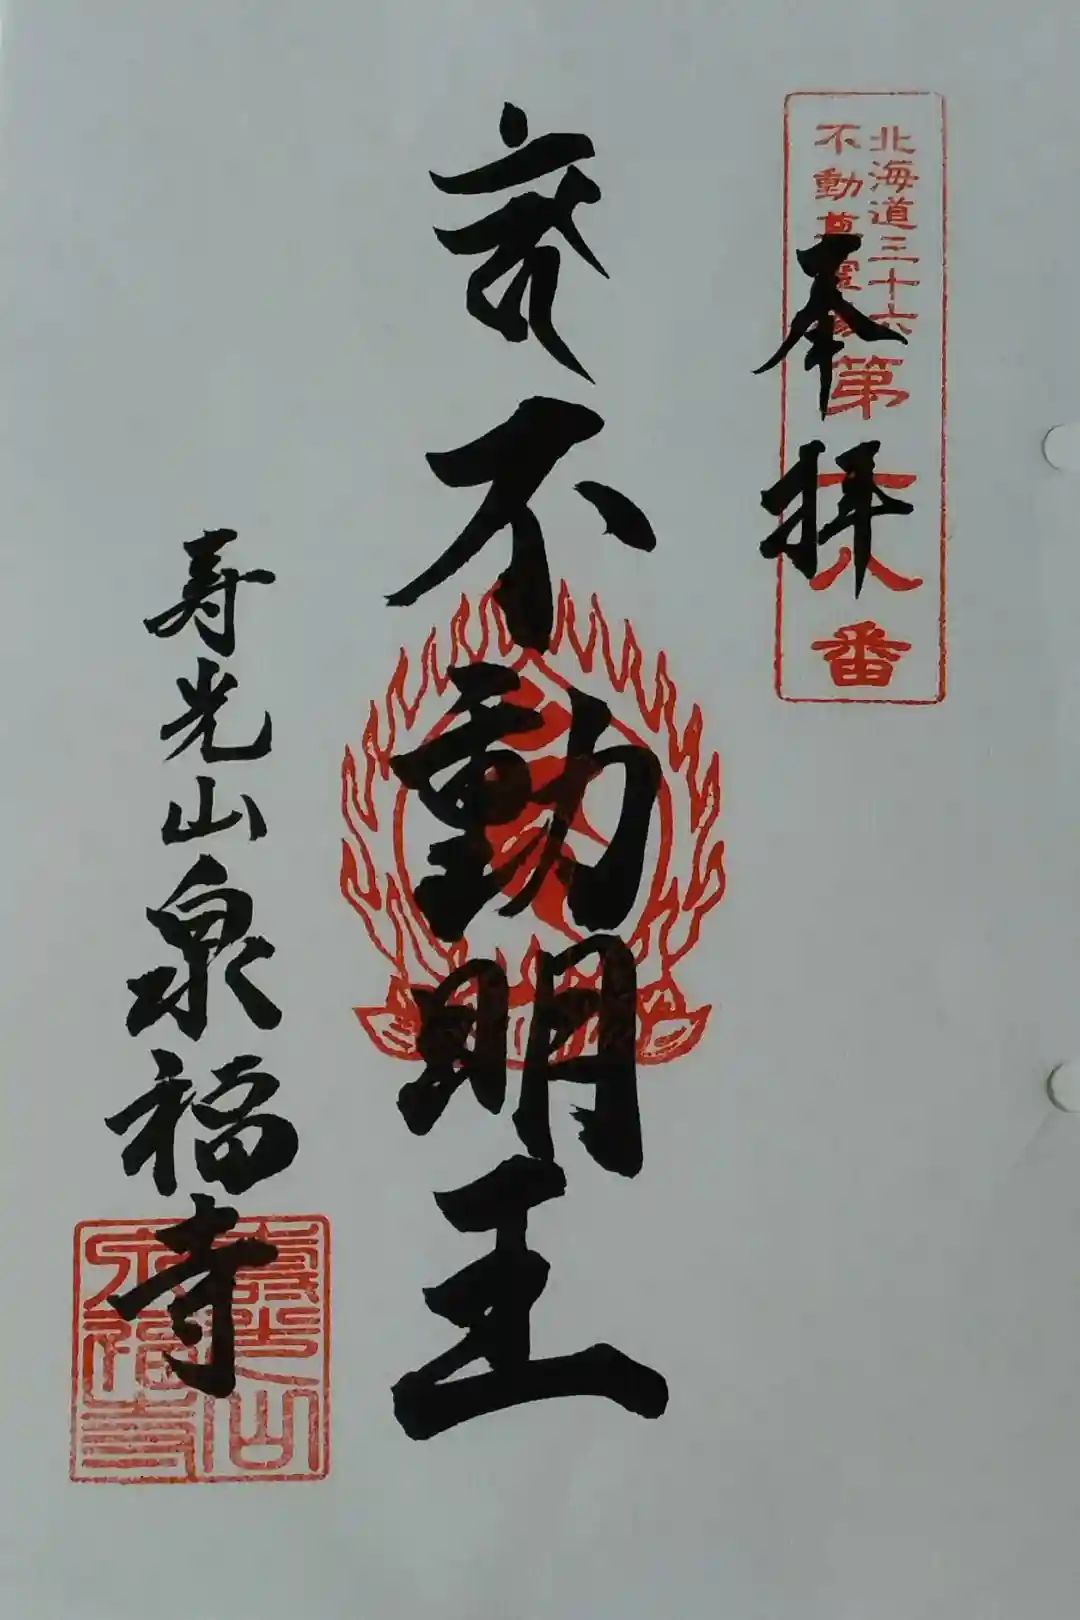 北海道三十六
不動尊霊場
第八番
奉拝
不動明王
寿光山泉福寺
壽光山
泉福寺